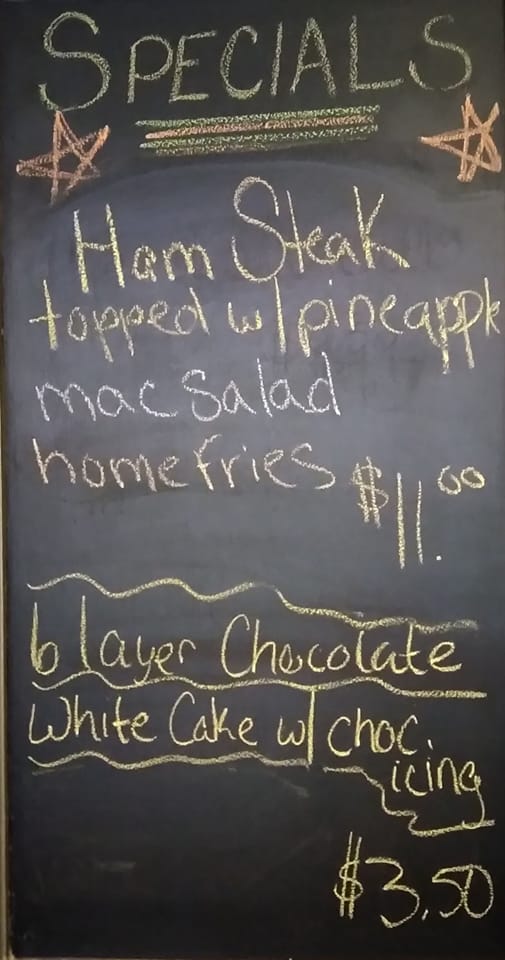 SPECIALS
Ham Steak
topped w/ pineapple
mac salad
home fries $11.00
6 layer Chocolate
White Cake w/ choc.
icing
$3.50